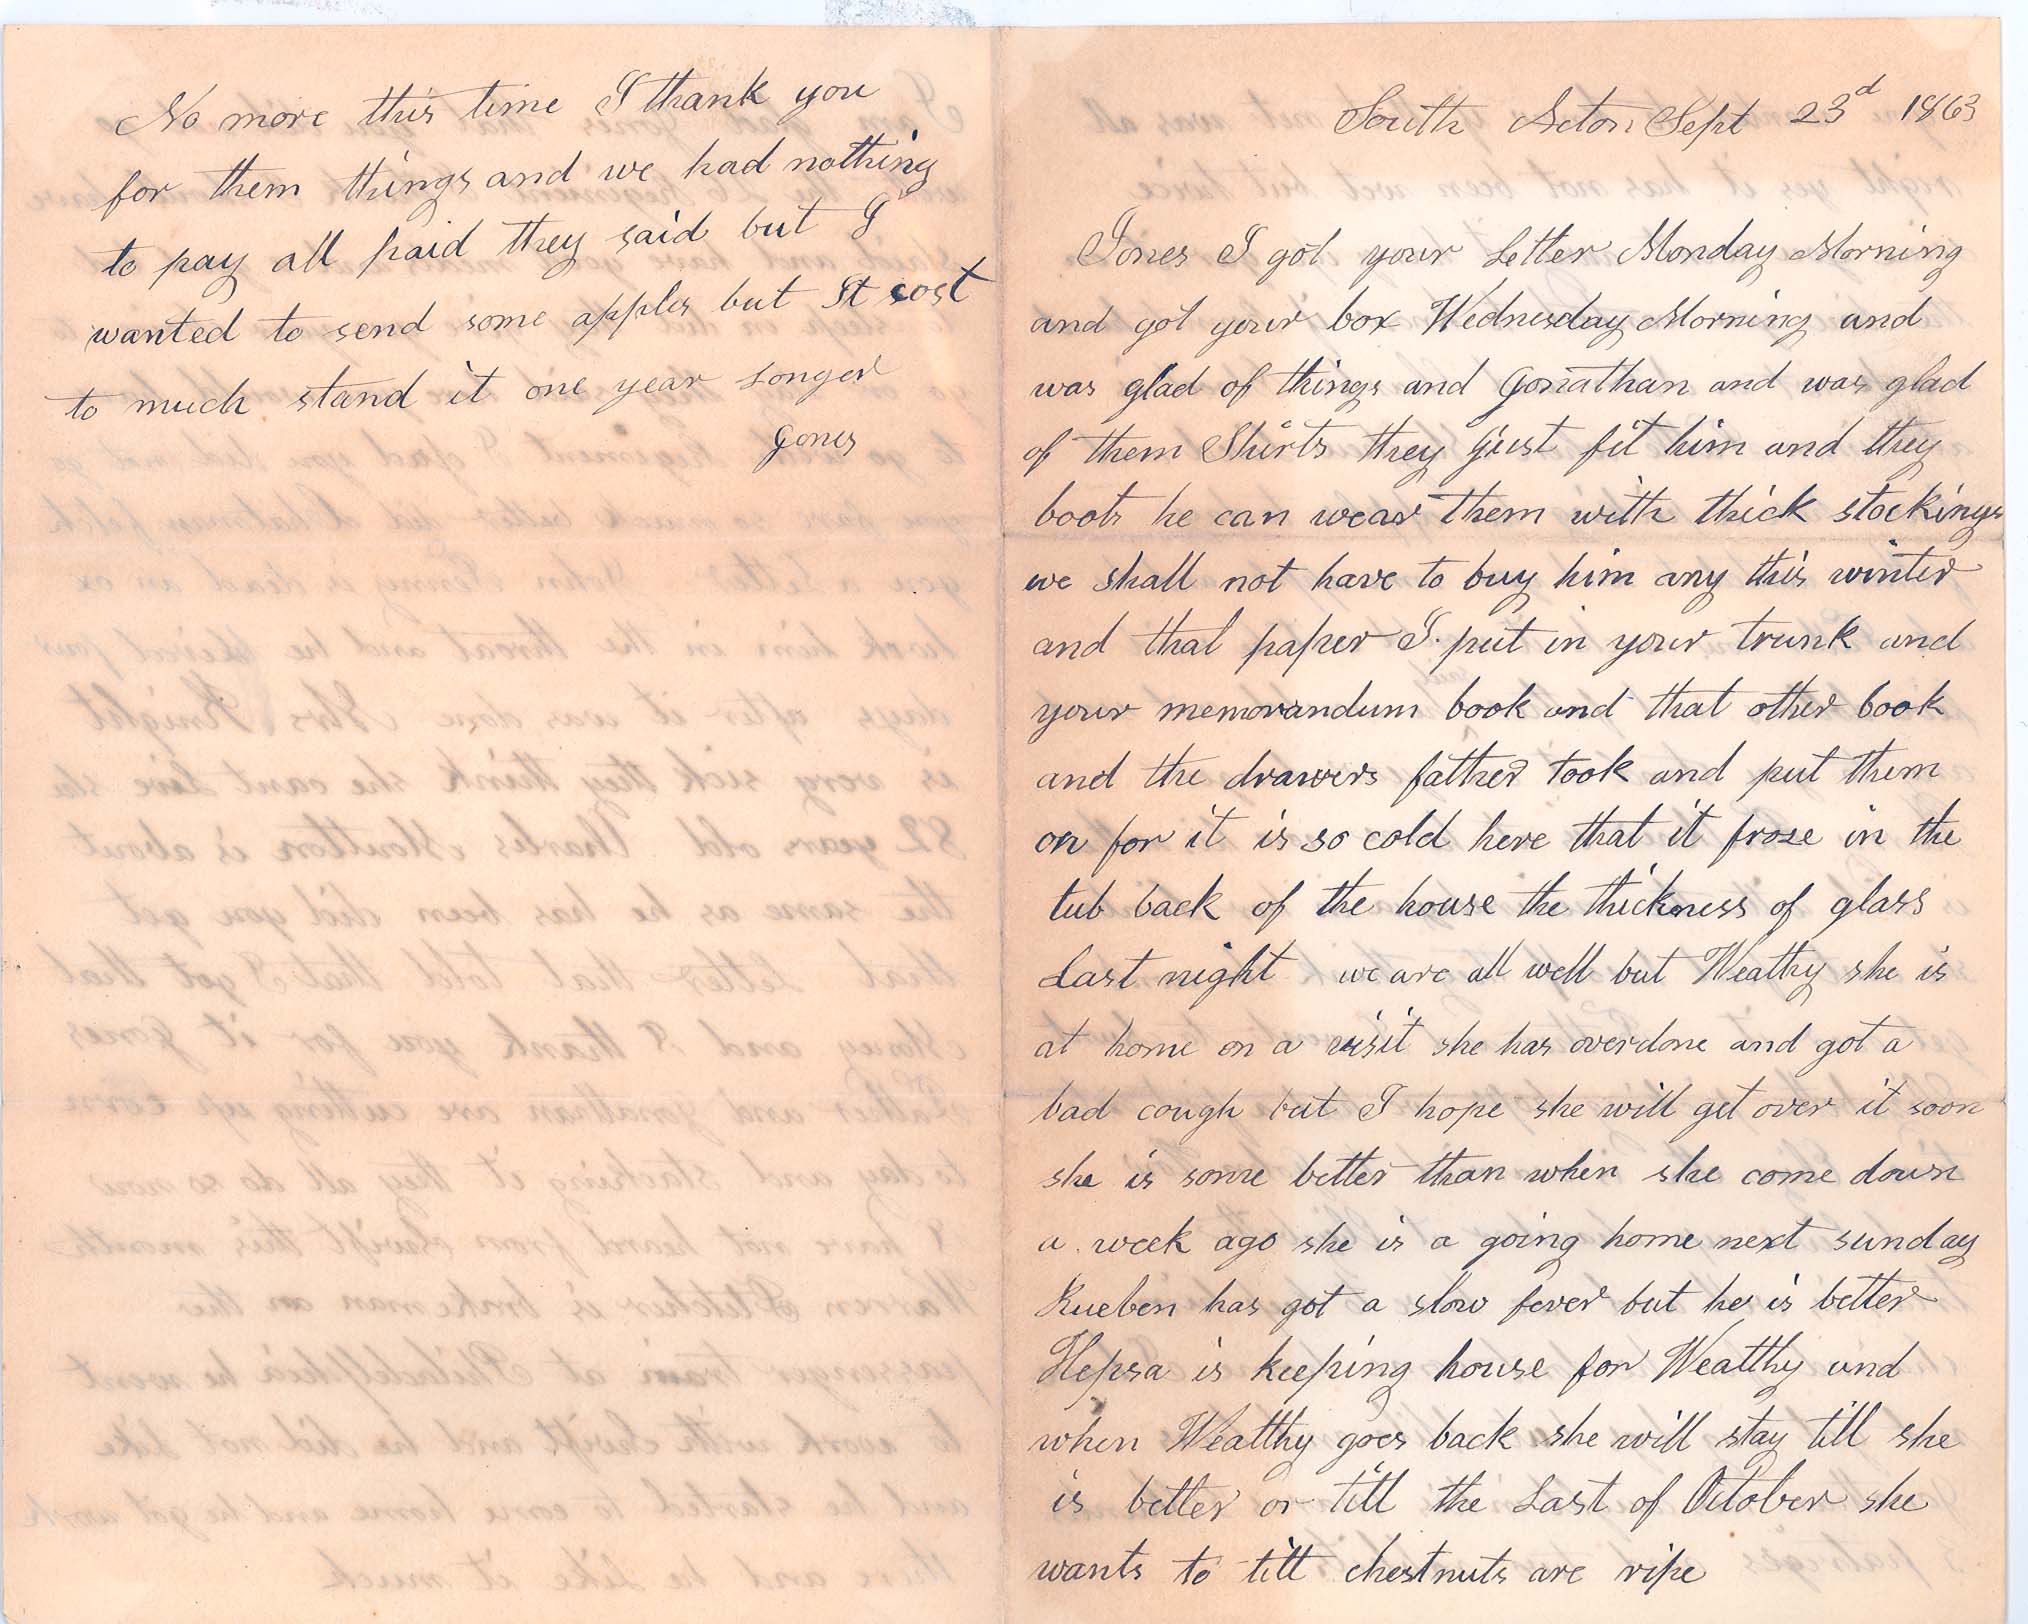 No more this time I thank you
for them things and we had nothing
to pay all paid they said but I
wanted to send some apples but It cost
to much stand it one year Longer
Jones
South Acton Sept 23d 1863
Jones I got your Letter Monday Morning
and got your box Wednesday Morning and
was glad of things and Jonathan and was glad
of them Shirts they Just fit him and they
boots he can wear them with thick stockings
we shall not have to buy him any this winter
and that paper I put in your trunk and
your memorandum book and that other book
and the drawers father took and put them
on for it is so cold here that it froze in the
tub back of the house the thickness of glass
Last night we are all well but Wealthy she is
at home on a visit she has overdone and got a
bad cough but I hope she will get over it soon
she is some better than when she come down
a week ago she is a going home next sunday
Rueben has got a slow fever but he is better
Hepsa is keeping house for Wealthy and
when Wealthy goes back she will stay till she
is better or till the Last of October she
wants to till chestnuts are ripe